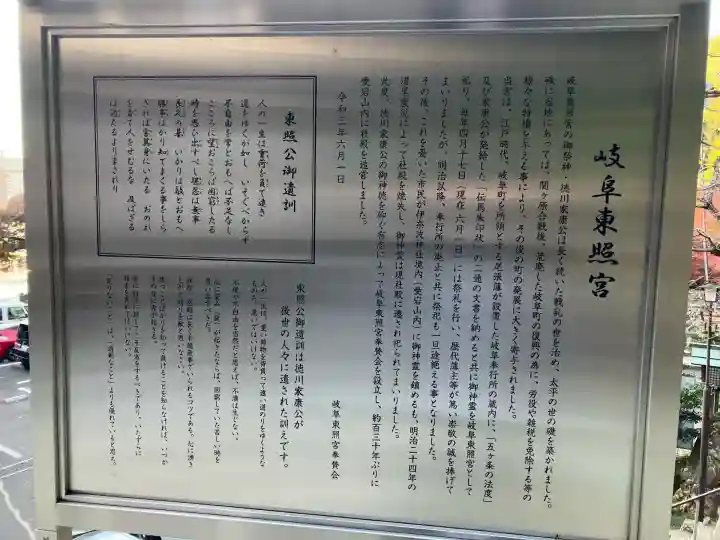 岐阜東照宮
岐阜東照宮の御祭神、徳川家康公は長く続いた戦乱の世を治め、太平の世の礎を築かれました。
岐阜に於いては、関ヶ原合戦後、荒廃した岐阜町の復興の為に、労役や雑税を免除する等の
様々な特権を与える事により、その後の町の発展に大きく寄与されました。
当宮は、江戸時代、岐阜町を所領とする尾張藩が設置した岐阜奉行所の蔵内に、「五ヶ条の法度」
及び家康公が発給した「伝馬朱印状」の二通の文書を納めると共に御神霊を岐阜東照宮として
祀り、毎年四月十七日(現在 六月一日)には祭礼を行い、歴代藩主等が篤い崇敬の誠を捧げて
まいりましたが、明治以降、奉行所の廃止と共に祭祀も一旦途絶える事となりました。
その後、これを憂いた市民が伊奈波神社境内(愛岩山内)に御神霊を鎮めるも、明治二十四年の
濃尾震災によって社殿を焼失し、御神霊は現社殿に遷され祀られてまいりました。
此度、徳川家康公の御神徳を仰ぐ有志によって岐阜東照宮奉賛会を設立し、約百三十年ぶりに
愛岩山内に社殿を造営しました。
令和三年六月一日
岐阜東照宮奉賛会
東照公御遺訓
人の一生は重荷を負て遠き
道をゆくが如し いそぐべからず
不自由を常とおもへば不足なし
こころに望おこらば困窮したる
時を思ひ出すべし堪忍は無事
長久の基 いかりは敵とおもへ
勝事ばかり知てまくる事をしら
ざれば害其身にいたる おのれ
を責て人をせむるな 及ばざる
は過たるよりまされり
東照公御遺訓は徳川家康公が
後世の人々に遺された訓えです。
人の一生は、重い荷物を背負って遠い道のりをゆくような
ものだ。急いではいけない。
不便や不自由を当然だと思えば、不満は生じない。
心に望み(欲)が起きたならば、困窮していた苦しい時を
思い出すべきだ。